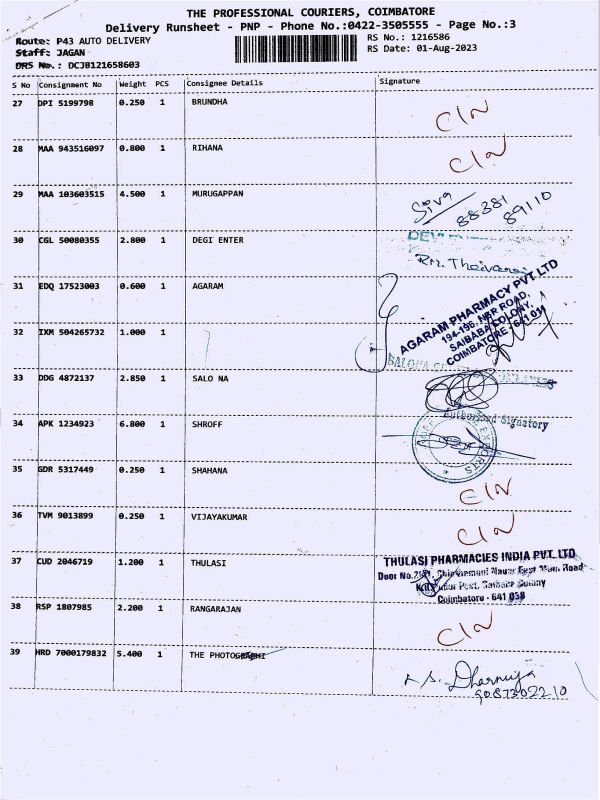 THE PROFESSIONAL COURIERS, COIMBATORE
Delivery Runsheet - PNP - Phone No.:0422-3505555 - Page No.:3
Route: P43 AUTO DELIVERY
RS No.: 1216586
Staff: JAGAN
RS Date: 01-Aug-2023
DRS No.: DCJB121658603
S No Consignment No Weight PCS Consignee Details Signature
27 DPI 5199798 0.250 1 BRUNDHA
C/N
28 MAA 943516097 0.800 1 RIHANA
C/N
29 MAA 103603515 4.500 1 MURUGAPPAN
Siva 88381
89110
30 CGL 50080355 2.800 1 DEGI ENTER
31 EDQ 17523003 0.600 1 AGARAM
AGARAM PHARMACY PVT LTD
194-196, NSR ROAD,
SAIBABA COLONY,
COIMBATORE - 641 011
32 IXM 504265732 1.000 1
33 DDG 4872137 2.850 1 SALO NA
Authorised Signatory
34 APK 1234923 6.800 1 SHROFF
EXPORTS
35 GDR 5317449 0.250 1 SHAHANA
C/N
36 TVM 9013899 0.250 1 VIJAYAKUMAR
C/N
37 CUD 2046719 1.200 1 THULASI
THULASI PHARMACIES INDIA PVT. LTD
Door No. East Main Road
Post, Saibaba Colony
Coimbatore - 641 038
38 RSP 1807985 2.200 1 RANGARAJAN
C/N
39 HRD 7000179832 5.400 1 THE PHOTOGRAPHI
9087302210